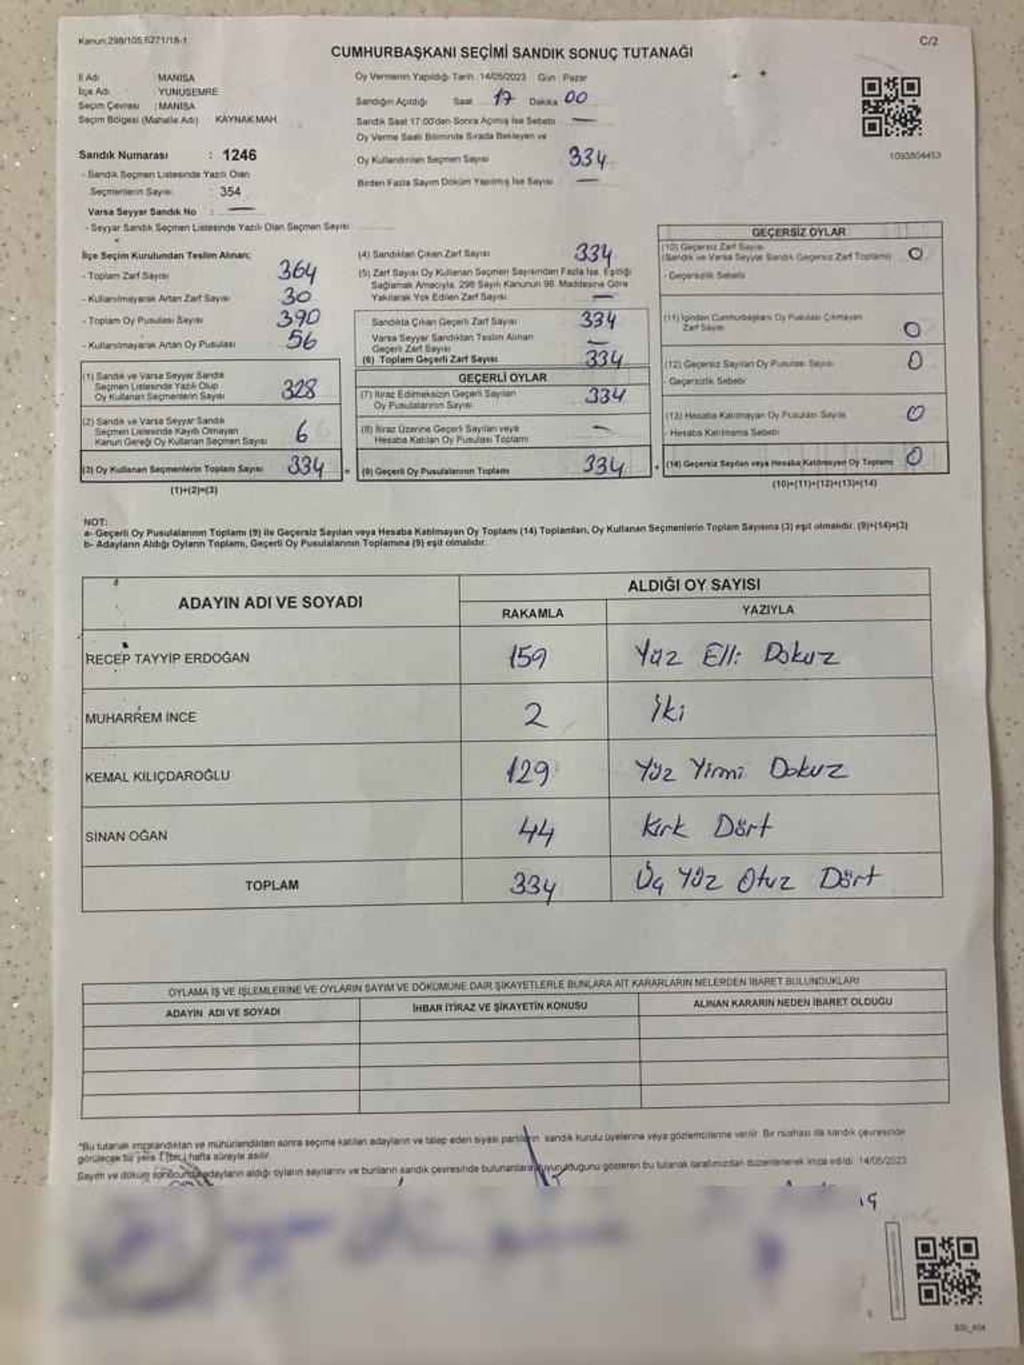 Kanun:298/105,6271/18-1
C/2
CUMHURBAŞKANI SEÇİMİ SANDIK SONUÇ TUTANAĞI
İl Adı : MANİSA
İlçe Adı : YUNUSEMRE
Seçim Çevresi : MANİSA
Seçim Bölgesi (Mahalle Adı) KAYNAK MAH.
Sandık Numarası : 1246
- Sandık Seçmen Listesinde Yazılı Olan
Seçmenlerin Sayısı : 354
Varsa Seyyar Sandık No : —
- Seyyar Sandık Seçmen Listesinde Yazılı Olan Seçmen Sayısı
Oy Vermenin Yapıldığı Tarih : 14/05/2023 Gün : Pazar
Sandığın Açıldığı Saat 17 Dakika 00
Sandık Saat 17:00'den Sonra Açılmış İse Sebebi —
Oy Verme Saati Bitiminde Sırada Bekleyen ve
Oy Kullandırılan Seçmen Sayısı 334
Birden Fazla Sayım Döküm Yapılmış İse Sayısı —
1093804453
İlçe Seçim Kurulundan Teslim Alınan;
- Toplam Zarf Sayısı 364
- Kullanılmayarak Artan Zarf Sayısı 30
- Toplam Oy Pusulası Sayısı 390
- Kullanılmayarak Artan Oy Pusulası 56
(1) Sandık ve Varsa Seyyar Sandık
Seçmen Listesinde Yazılı Olup
Oy Kullanan Seçmenlerin Sayısı 328
(2) Sandık ve Varsa Seyyar Sandık
Seçmen Listesinde Kayıtlı Olmayan
Kanun Gereği Oy Kullanan Seçmen Sayısı 6
(3) Oy Kullanan Seçmenlerin Toplam Sayısı 334
(1)+(2)=(3)
(4) Sandıktan Çıkan Zarf Sayısı 334
(5) Zarf Sayısı Oy Kullanan Seçmen Sayısından Fazla İse, Eşitliği
Sağlamak Amacıyla, 298 Sayılı Kanunun 98. Maddesine Göre
Yakılarak Yok Edilen Zarf Sayısı —
Sandıkta Çıkan Geçerli Zarf Sayısı 334
Varsa Seyyar Sandıktan Teslim Alınan
Geçerli Zarf Sayısı —
(6) Toplam Geçerli Zarf Sayısı 334
GEÇERLİ OYLAR
(7) İtiraz Edilmeksizin Geçerli Sayılan
Oy Pusulalarının Sayısı 334
(8) İtiraz Üzerine Geçerli Sayılan veya
Hesaba Katılan Oy Pusulası Toplamı —
(9) Geçerli Oy Pusulalarının Toplamı 334
GEÇERSİZ OYLAR
(10) Geçersiz Zarf Sayısı
(Sandık ve Varsa Seyyar Sandık Geçersiz Zarf Toplamı) 0
- Geçersizlik Sebebi
(11) İçinden Cumhurbaşkanı Oy Pusulası Çıkmayan
Zarf Sayısı 0
(12) Geçersiz Sayılan Oy Pusulası Sayısı 0
- Geçersizlik Sebebi
(13) Hesaba Katılmayan Oy Pusulası Sayısı 0
- Hesaba Katılmama Sebebi
(14) Geçersiz Sayılan veya Hesaba Katılmayan Oy Toplamı 0
(10)+(11)+(12)+(13)=(14)
NOT:
a- Geçerli Oy Pusulalarının Toplamı (9) ile Geçersiz Sayılan veya Hesaba Katılmayan Oy Toplamı (14) Toplamları, Oy Kullanan Seçmenlerin Toplam Sayısına (3) eşit olmalıdır. (9)+(14)=(3)
b- Adayların Aldığı Oyların Toplamı, Geçerli Oy Pusulalarının Toplamına (9) eşit olmalıdır.
ADAYIN ADI VE SOYADI
ALDIĞI OY SAYISI
RAKAMLA YAZIYLA
RECEP TAYYİP ERDOĞAN 159 Yüz Elli Dokuz
MUHARREM İNCE 2 İki
KEMAL KILIÇDAROĞLU 129 Yüz Yirmi Dokuz
SİNAN OĞAN 44 Kırk Dört
TOPLAM 334 Üç Yüz Otuz Dört
OYLAMA İŞ VE İŞLEMLERİNE VE OYLARIN SAYIM VE DÖKÜMÜNE DAİR ŞİKAYETLERLE BUNLARA AİT KARARLARIN NELERDEN İBARET BULUNDUKLARI
ADAYIN ADI VE SOYADI İHBAR İTİRAZ VE ŞİKAYETİN KONUSU ALINAN KARARIN NEDEN İBARET OLDUĞU
*Bu tutanak imzalandıktan ve mühürlendikten sonra seçime katılan adayların ve talep eden siyasi partilerin sandık kurulu üyelerine veya gözlemcilerine verilir. Bir nüshası da sandık çevresinde
görülecek bir yere 1 (bir) hafta süreyle asılır.
Sayım ve döküm sonucunda adayların aldığı oyların sayılarını ve bunların sandık çevresinde bulunanlara duyurulduğunu gösteren bu tutanak tarafımızdan düzenlenerek imza edildi. 14/05/2023